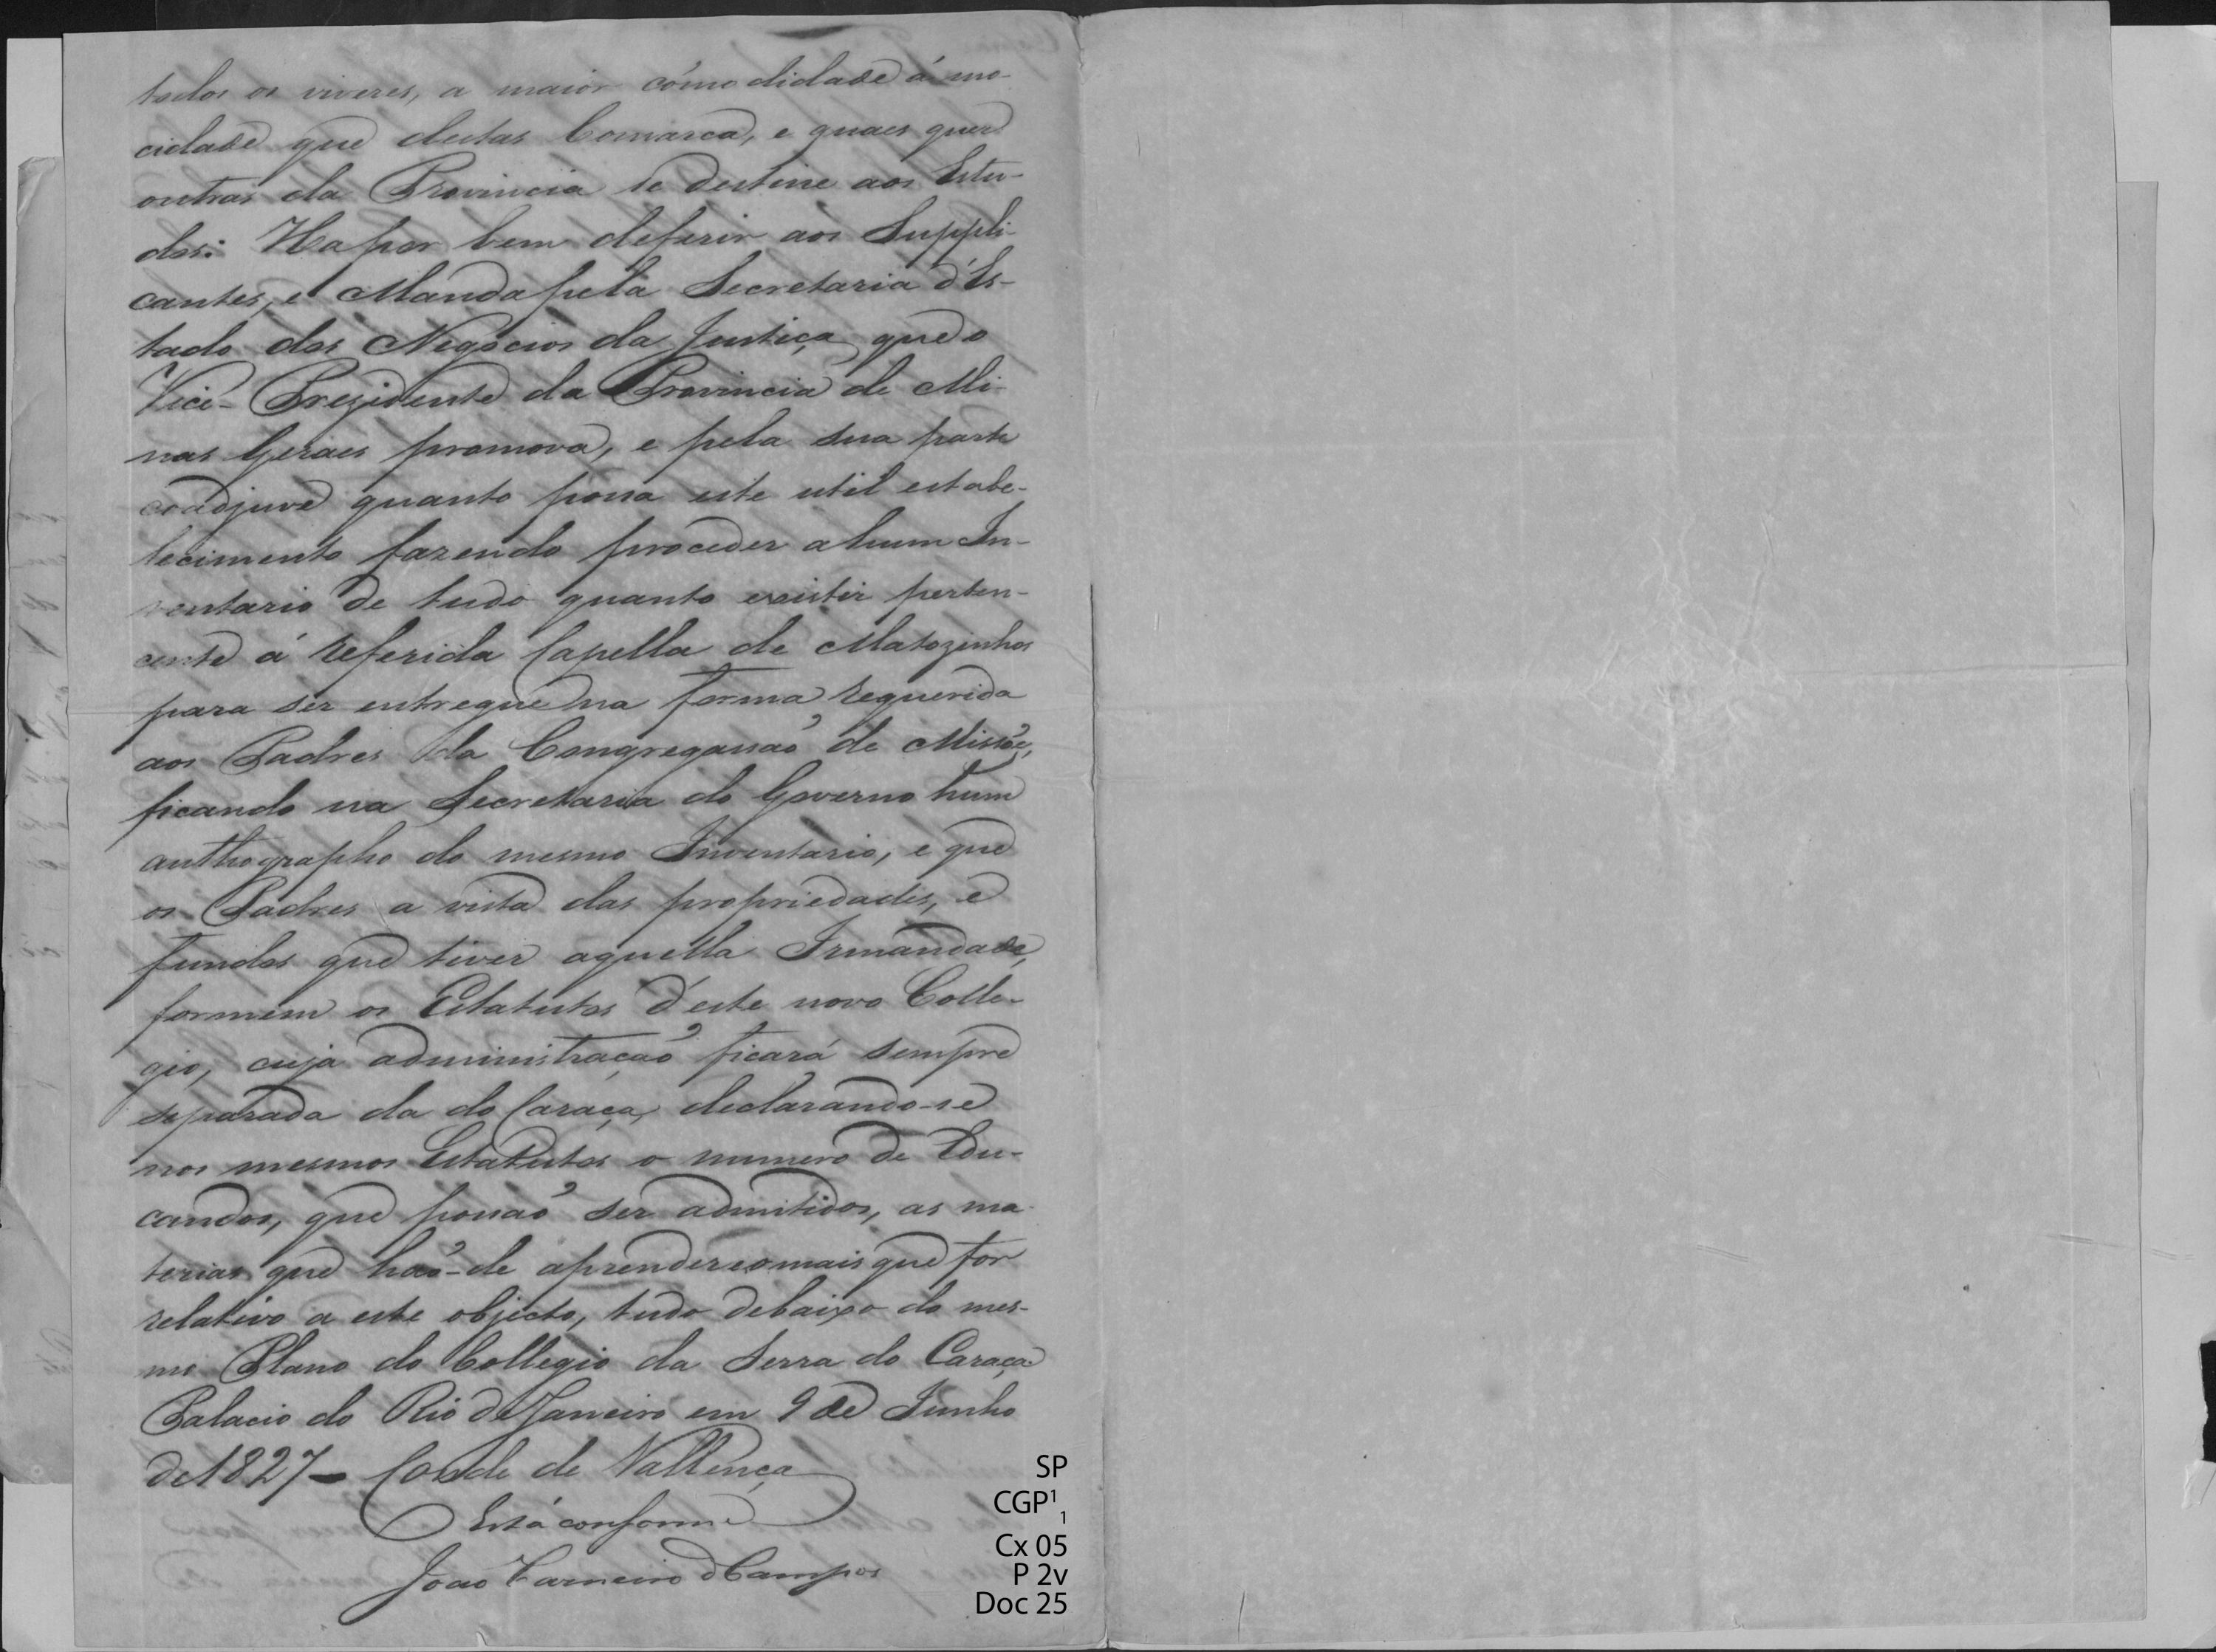 todos os viveres, a maior cómodidade á mo-
cidade que destas Comarca, e quaes quer
outras da Provincia se destine aos Estu-
dos: Ha por bem deferir aos Suppli-
cantes, e Manda pela Secretaria d'Es-
tado dos Negocios da Justiça que o
Vice-Prezidente da Provincia de Mi-
nas Geraes promova, e pela sua parte
coadjuve quanto possa este util estabe-
lecimento fazendo proceder a hum In-
ventario de tudo quanto existir perten-
cente á referida Capella de Matozinhos
para ser entregue na forma requerida
aos Padres da Congregassaõ de Missões,
ficando na Secretaria do Governo hum
authographo do mesmo Inventario, e que
os Padres a vista das propriedades, e
fundos que tiver aquella Irmandade,
formem os Estatutos d'este novo Colle-
gio, cuja administraçaõ ficará sempre
separada da do Caraça, declarando-se
nos mesmos Estatutos o numero de Edu-
candos, que possaõ ser admitidos, as ma-
terias que haõ-de aprender e o mais que for
relativo a este objecto, tudo debaixo do mes-
mo Plano do Collegio da Serra do Caraça
Palacio do Rio de Janeiro em 9 de Junho
de 1827 - Conde de Vallença
Está conforme
João Carneiro de Campos
SP
CGP¹₁
Cx 05
P 2v
Doc 25